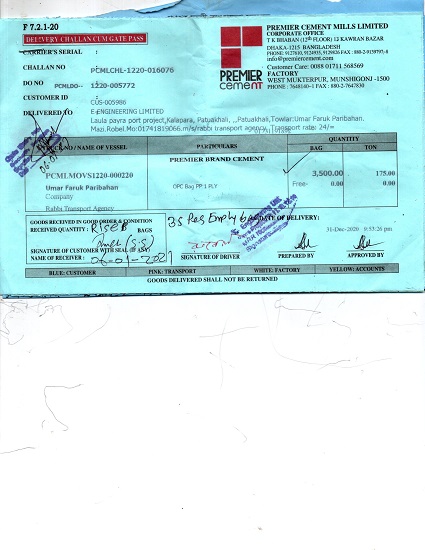 F 7.2.1-20
DELIVERY CHALLAN CUM GATE PASS
CARRIER'S SERIAL :
CHALLAN NO PCMLCHL-1220-016076
DO NO PCMLDO-- 1220-005772
CUSTOMER ID CUS-005986
DELIVERED TO E-ENGINEERING LIMITED
Laula payra port project,Kalapara, Patuakhali, ,,Patuakhali,Towlar:Umar Faruk Paribahan.
Mazi.Robel.Mo:01741819066.m/s/rabbi transport agency. Transport rate: 24/=
PREMIER CEMENT
PREMIER CEMENT MILLS LIMITED
CORPORATE OFFICE
T K BHABAN (12th FLOOR) 13 KAWRAN BAZAR
DHAKA-1215 BANGLADESH
info@premiercement.com
Customer Care: 0088 01711 568569
FACTORY
WEST MUKTERPUR, MUNSHIGONJ -1500
PHONE : 7648140-1 FAX : 880-2-7647830
NO / NAME OF VESSEL PARTICULARS QUANTITY
BAG TON
PREMIER BRAND CEMENT
PCMLMOVS1220-000220 3,500.00 175.00
Umar Faruk Paribahan OPC Bag PP 1 PLY Free- 0.00 0.00
Company
Rabbi Transport Agency
GOODS RECEIVED IN GOOD ORDER & CONDITION
RECEIVED QUANTITY : BAGS
35 Pcs Empty bag
DATE OF DELIVERY:
31-Dec-2020 8:53:26 pm
SIGNATURE OF CUSTOMER WITH SEAL (IF ANY)
NAME OF RECEIVER : 06-01-2021
SIGNATURE OF DRIVER PREPARED BY APPROVED BY
BLUE: CUSTOMER PINK: TRANSPORT WHITE: FACTORY YELLOW: ACCOUNTS
GOODS DELIVERED SHALL NOT BE RETURNED